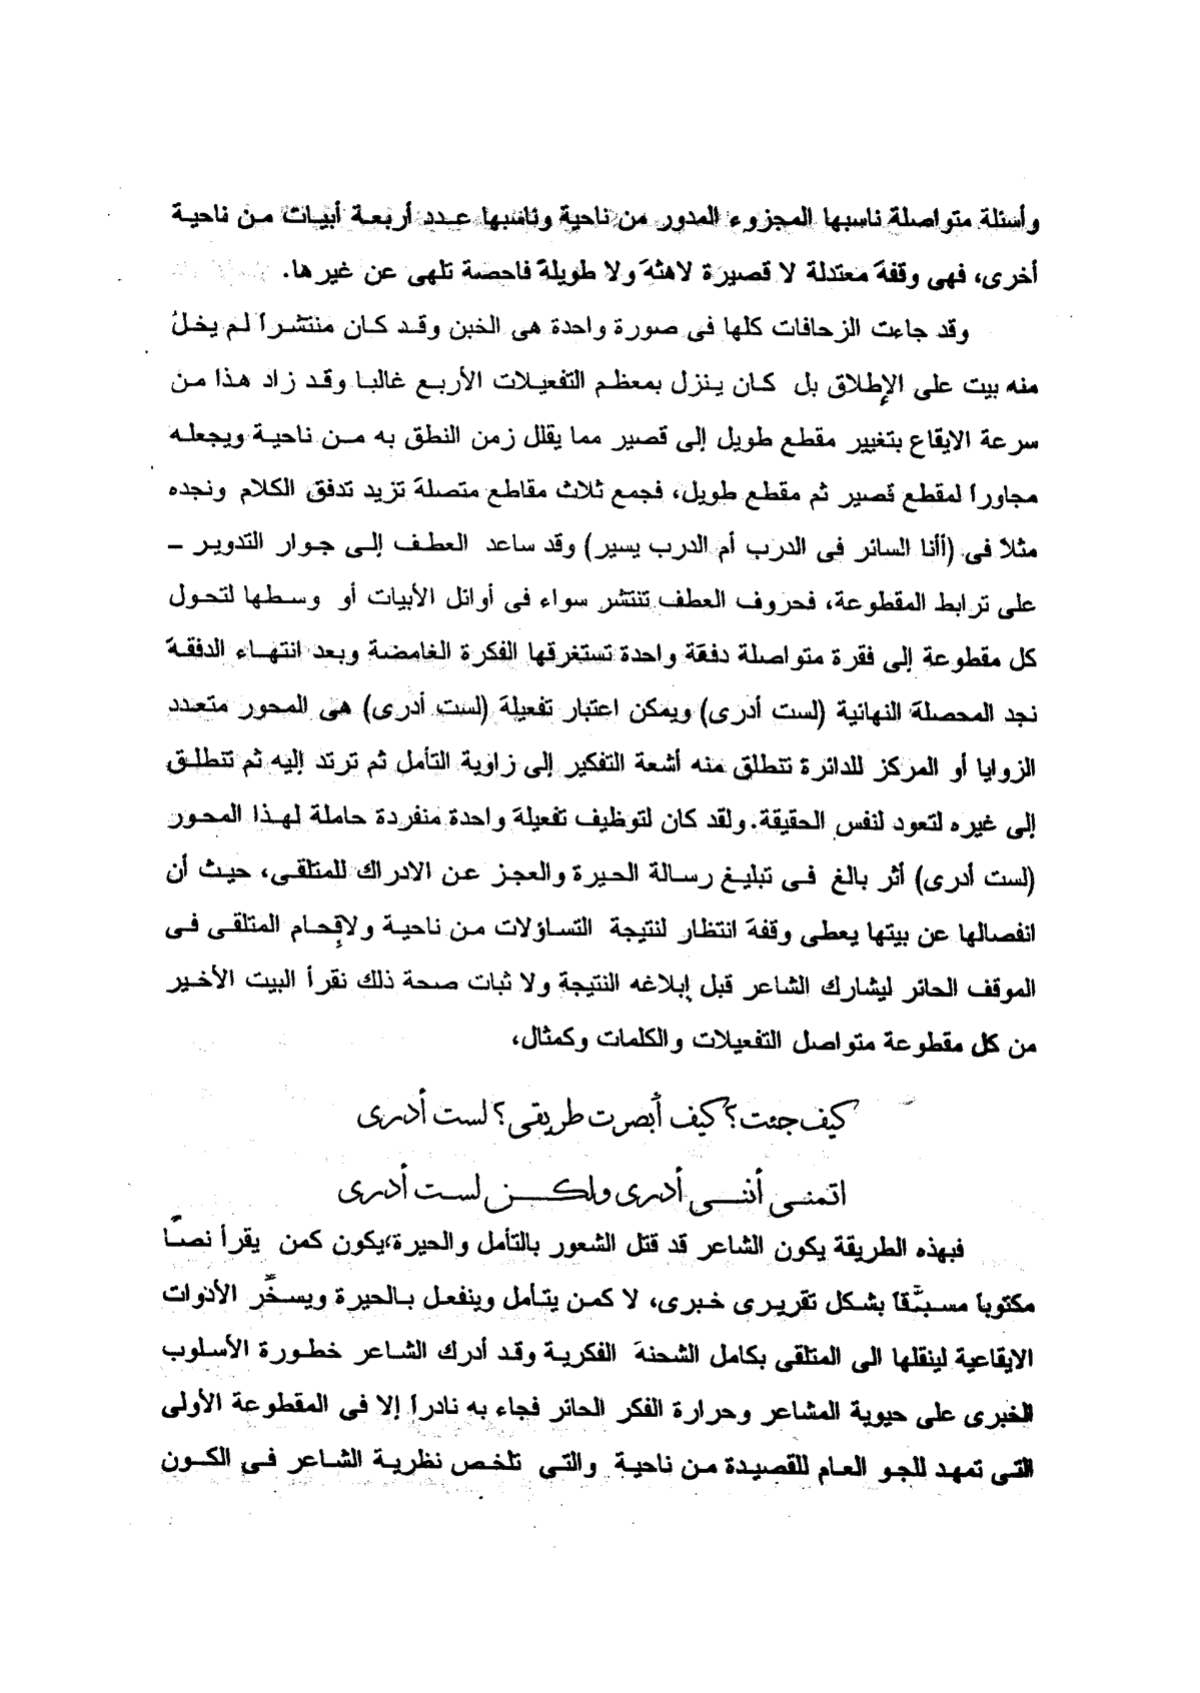 وأسئلة متواصلة ناسبها المجزوء المدور من ناحية وناسبها عدد أربعة أبيات من ناحية
أخرى، فهى وقفة معتدلة لا قصيرة لاهثة ولا طويلة فاحصة تلهى عن غيرها.
وقد جاءت الزحافات كلها فى صورة واحدة هى الخبن وقد كان منتشراً لم يخلُ
منه بيت على الإطلاق بل كان ينزل بمعظم التفعيلات الأربع غالبا وقد زاد هذا من
سرعة الايقاع بتغيير مقطع طويل إلى قصير مما يقلل زمن النطق به من ناحية ويجعله
مجاوراً لمقطع قصير ثم مقطع طويل، فجمع ثلاث مقاطع متصلة تزيد تدفق الكلام ونجده
مثلاً فى (أأنا السائر فى الدرب أم الدرب يسير) وقد ساعد العطف إلى جوار التدوير –
على ترابط المقطوعة، فحروف العطف تنتشر سواء فى أوائل الأبيات أو وسطها لتحول
كل مقطوعة إلى فقرة متواصلة دفقة واحدة تستغرقها الفكرة الغامضة وبعد انتهاء الدفقة
نجد المحصلة النهائية (لست أدرى) ويمكن اعتبار تفعيلة (لست أدرى) هى المحور متعدد
الزوايا أو المركز للدائرة تنطلق منه أشعة التفكير إلى زاوية التأمل ثم ترتد إليه ثم تنطلق
إلى غيره لتعود لنفس الحقيقة. ولقد كان لتوظيف تفعيلة واحدة منفردة حاملة لهذا المحور
(لست أدرى) أثر بالغ فى تبليغ رسالة الحيرة والعجز عن الادراك للمتلقى، حيث أن
انفصالها عن بيتها يعطى وقفة انتظار لنتيجة التساؤلات من ناحية ولإقحام المتلقى فى
الموقف الحائر ليشارك الشاعر قبل إبلاغه النتيجة ولا ثبات صحة ذلك نقرأ البيت الأخير
من كل مقطوعة متواصل التفعيلات والكلمات وكمثال،
كيف جئت؟ كيف أبصرت طريقى؟ لست أدرى
اتمنى أننى أدرى ولكن لست أدرى
فبهذه الطريقة يكون الشاعر قد قتل الشعور بالتأمل والحيرة؛يكون كمن يقرأ نصاً
مكتوباً مسبَّقاً بشكل تقريرى خبرى، لا كمن يتأمل وينفعل بالحيرة ويسخِّر الأدوات
الايقاعية لينقلها الى المتلقى بكامل الشحنة الفكرية وقد أدرك الشاعر خطورة الأسلوب
الخبرى على حيوية المشاعر وحرارة الفكر الحائر فجاء به نادراً إلا فى المقطوعة الأولى
التى تمهد للجو العام للقصيدة من ناحية والتى تلخص نظرية الشاعر فى الكون